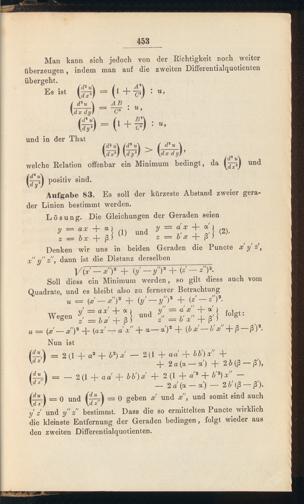 453
Man kann sich jedoch von der Richtigkeit noch weiter
überzeugen, indem man auf die zweiten Differentialquotienten
übergeht.
Es ist (d²u/dx²) = (1 + A²/C²) : u,
(d²u/dx dy) = AB/C² : u,
(d²u/dy²) = (1 + B²/C²) : u,
und in der That
(d²u/dx²)(d²u/dy²) > (d²u/dx dy)²,
welche Relation offenbar ein Minimum bedingt, da (d²u/dx²) und
(d²u/dy²) positiv sind.
Aufgabe 83. Es soll der kürzeste Abstand zweier gera-
der Linien bestimmt werden.
Lösung. Die Gleichungen der Geraden seien
y = ax + α } (1) und y = a′x + α′ } (2).
z = bx + β z = b′x + β′
Denken wir uns in beiden Geraden die Puncte x′y′z′,
x″y″z″, dann ist die Distanz derselben
√(x′ − x″)² + (y′ − y″)² + (z′ − z″)².
Soll diess ein Minimum werden, so gilt diess auch vom
Quadrate, und es bleibt also zu fernerer Betrachtung
u = (x′ − x″)² + (y′ − y″)² + (z′ − z″)².
Wegen y′ = ax′ + α } und y″ = a′x″ + α′ } folgt:
z′ = bx′ + β z″ = b′x″ + β′
u = (x′ − x″)² + (ax′ − a′x″ + α − α′)² + (bx′ − b′x″ + β − β′)².
Nun ist
(du/dx′) = 2(1 + a² + b²)x′ − 2(1 + aa′ + bb′)x″ +
+ 2a(α − α′) + 2b(β − β′),
(du/dx″) = − 2(1 + aa′ + bb′)x′ + 2(1 + a′² + b′²)x″ −
− 2a′(α − α′) − 2b′(β − β′).
(du/dx′) = 0 und (du/dx″) = 0 geben x′ und x″, und somit sind auch
y′z′ und y″z″ bestimmt. Dass die so ermittelten Puncte wirklich
die kleinste Entfernung der Geraden bedingen, folgt wieder aus
den zweiten Differentialquotienten.